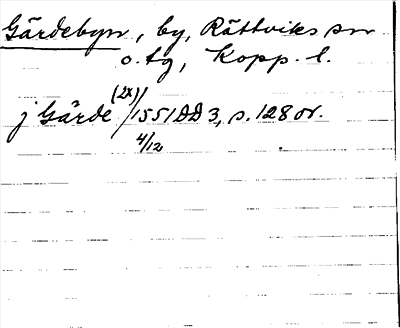 Gärdebyn, by, Rättviks sn
o. tg, Kopp. l.
(2x)
j Gärde 1551 DD 3, s. 128 or.
4/12